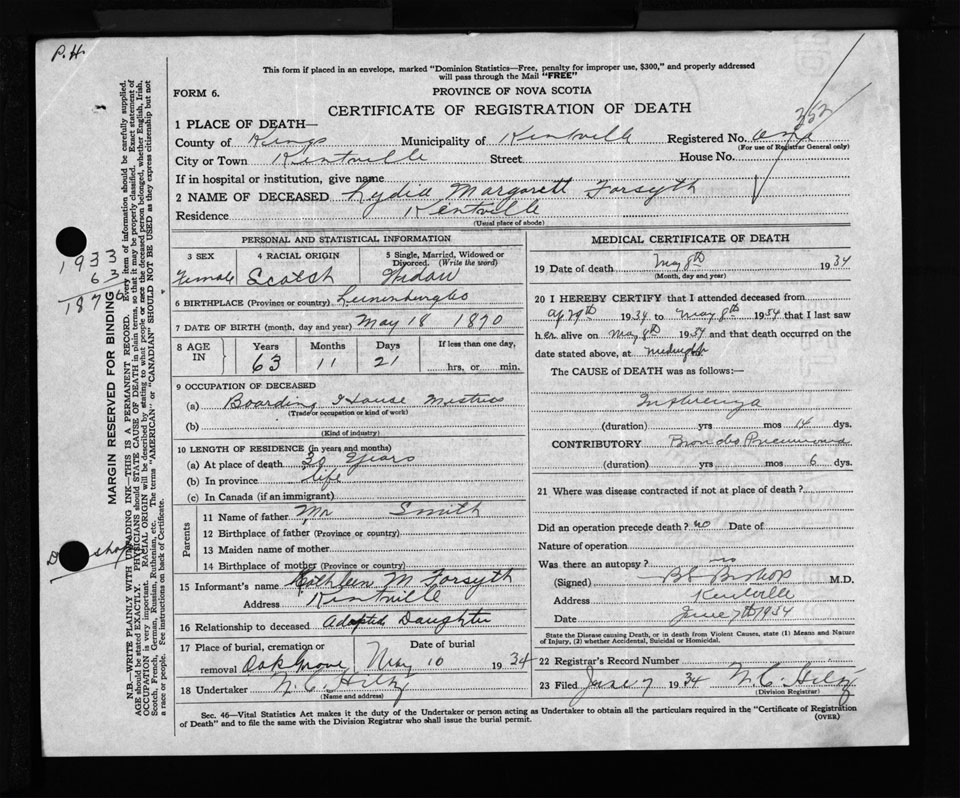 P.H.
This form if placed in an envelope, marked "Dominion Statistics—Free, penalty for improper use, $300," and properly addressed
will pass through the Mail "FREE"
FORM 6.
PROVINCE OF NOVA SCOTIA
CERTIFICATE OF REGISTRATION OF DEATH
352
1 PLACE OF DEATH—
County of Kings Municipality of Kentville Registered No.
(For use of Registrar General only)
City or Town Kentville Street House No.
If in hospital or institution, give name
2 NAME OF DECEASED Lydia Margarett Forsyth
Residence Kentville
(Usual place of abode)
PERSONAL AND STATISTICAL INFORMATION
3 SEX 4 RACIAL ORIGIN 5 Single, Married, Widowed or Divorced. (Write the word)
Female Scotsh Widow
6 BIRTHPLACE (Province or country)
7 DATE OF BIRTH (month, day and year) May 18 1870
8 AGE IN Years Months Days If less than one day,
63 11 21 hrs. or min.
9 OCCUPATION OF DECEASED
(a) Boarding House Mistress
(Trade or occupation or kind of work)
(b)
(Kind of industry)
10 LENGTH OF RESIDENCE (in years and months)
(a) At place of death 30 Years
(b) In province life
(c) In Canada (if an immigrant)
Parents
11 Name of father Mr Smith
12 Birthplace of father (Province or country)
13 Maiden name of mother
14 Birthplace of mother (Province or country)
15 Informant's name Kathleen M Forsyth
Address Kentville
16 Relationship to deceased Adopted Daughter
17 Place of burial, cremation or removal Oak Grove Date of burial May 10 1934
18 Undertaker N. C. Hiltz
(Name and address)
MEDICAL CERTIFICATE OF DEATH
19 Date of death May 8th 1934
(Month, day and year)
20 I HEREBY CERTIFY that I attended deceased from
1934 to May 8th 1934 that I last saw
her alive on May 8th 1934 and that death occurred on the
date stated above, at midnight
The CAUSE of DEATH was as follows:—
Influenza
(duration) yrs mos 14 dys.
CONTRIBUTORY Broncho Pneumonia
(duration) yrs mos 6 dys.
21 Where was disease contracted if not at place of death?
Did an operation precede death? no Date of
Nature of operation
Was there an autopsy? no
(Signed) Bishop M.D.
Address Kentville
Date June 7th 1934
State the Disease causing Death, or in death from Violent Causes, state (1) Means and Nature
of Injury, (2) whether Accidental, Suicidal or Homicidal.
22 Registrar's Record Number
23 Filed June 7 1934 N. C. Hiltz
(Division Registrar)
Sec. 46—Vital Statistics Act makes it the duty of the Undertaker or person acting as Undertaker to obtain all the particulars required in the "Certificate of Registration
of Death" and to file the same with the Division Registrar who shall issue the burial permit.
(OVER)
1933
63
187
MARGIN RESERVED FOR BINDING
N.B.—WRITE PLAINLY WITH UNFADING INK—THIS IS A PERMANENT RECORD. Every item of information should be carefully supplied.
AGE should be stated EXACTLY. PHYSICIANS should STATE CAUSE OF DEATH in plain terms, so that it may be properly classified. Exact statement of
OCCUPATION is very important. RACIAL ORIGIN will be described by stating to what people or race the deceased person belonged, whether English, Irish,
Scotch, French, German, Russian, Ruthenian, etc. The terms "AMERICAN" or "CANADIAN" SHOULD NOT BE USED as they express citizenship but not
a race or people. Fee instructions on back of Certificate.